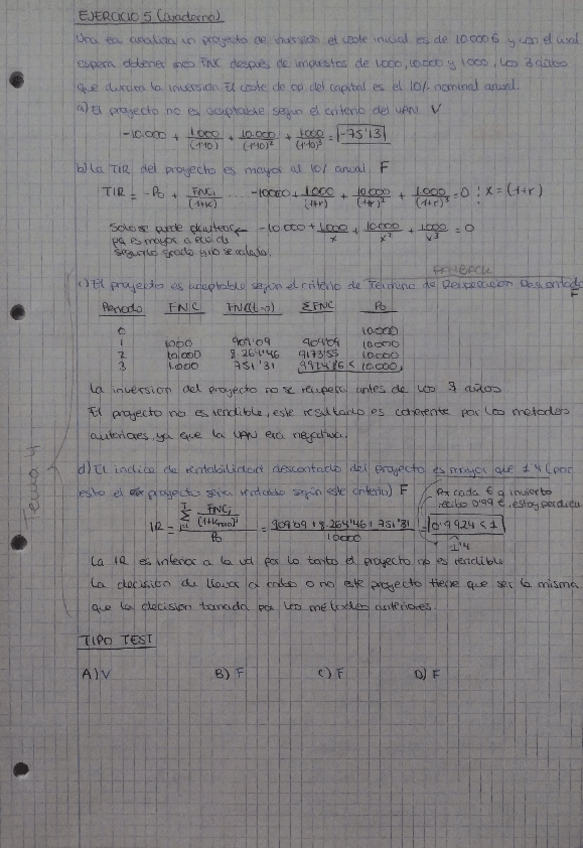 EJERCICIO 5 (Cuaderno)
Una ea analiza un proyecto de inversión el coste inicial es de 10.000€ y con el cual
espera obtener unos FNC después de impuestos de 1000, 10.000 y 1000, los 3 años
que duran la inversion El coste de op del capital es el 10% nominal anual.
a) El proyecto no es aceptable segun el criterio del VAN V
-10.000 + 1000/(1+10) + 10.000/(1+10)² + 1000/(1+10)³ = -75'13
b) La TIR del proyecto es mayor al 10% anual F
TIR = -P₀ + FNC₁/(1+k) ..... -10000 + 1000/(1+r) + 10.000/(1+r)² + 1.000/(1+r)³ = 0 ; x = (1+r)
Solo se puede plantear ← -10.000 + 1000/x + 10.000/x² + 1000/x³ = 0
pq es mayor a ec de
segundo grado y no se calcula.
PAYBACK
c) El proyecto es aceptable segun el criterio de Termino de Recuperacion Descontado
F
Periodo FNC FNC(t=0) ΣFNC P₀
0 10.000
1 1000 909'09 909'09 10.000
2 10.000 8.264'46 9173'55 10.000
3 1.000 751'31 9924'86 < 10.000
La inversion del proyecto no se recupera antes de los 3 años
El proyecto no es rendible, este resultado es coherente por los metodos
anteriores, ya que la VAN era negativa.
Tema 4
d) El indice de rentabilidad descontado del proyecto es mayor que 1'4 (por
esto el proyecto seria rentable segun este criterio) F
Por cada € q invierto
recibo 0'99 €, estoy perdiendo
IR = Σ FNCj/(1+k)ʲ / P₀ = 909'09 + 8.264'46 + 751'31 / 10000 = 0'9924 < 1
1'4
La IR es inferior a la ud por lo tanto el proyecto no es rendible
La decision de llevar a cabo o no este proyecto tiene que ser la misma
que la decision tomada por los metodos anteriores.
TIPO TEST
A) V B) F C) F D) F